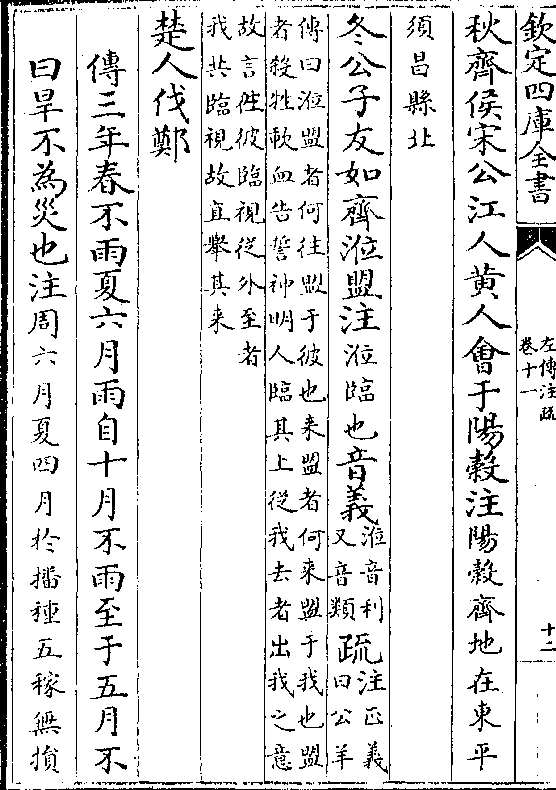 欽定四庫全書
左傳注疏
卷十一
十二
秋齊侯宋公江人黄人會于陽穀注陽穀齊地在東平
須昌縣北
冬公子友如齊涖盟注涖臨也音義涖音利
又音類疏注正義
曰公羊
傳曰涖盟者何往盟于彼也来盟者何来盟于我也盟
者殺牲歃血告誓神明人臨其上從我去者出我之意
故言往彼臨視從外至者
我共臨視故直舉其来
楚人伐鄭
傳三年春不雨夏六月雨自十月不雨至于五月不
曰旱不為災也注周六月夏四月於播種五稼無損